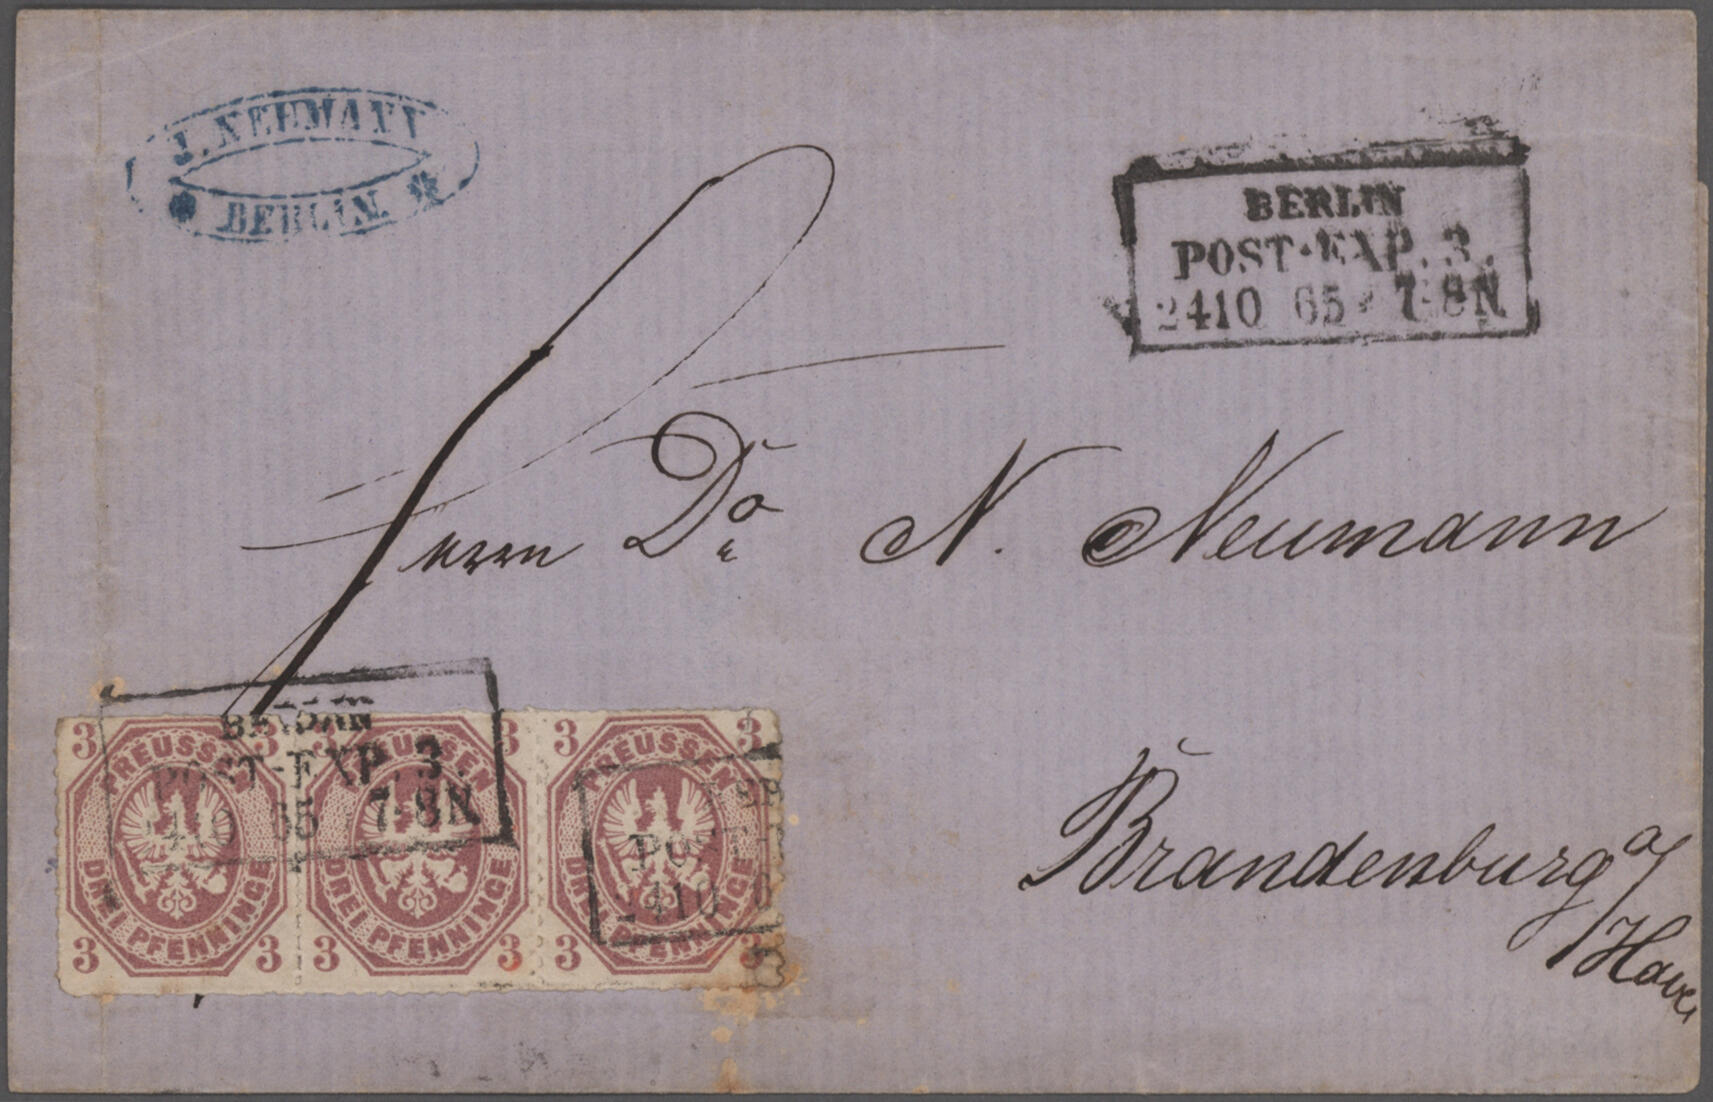 J. NEUMANN
* BERLIN. *
BERLIN
POST-EXP. 3.
2410 65 * 7-8N
Herrn Dr. N. Neumann
Brandenburg a/
Havel
BERLIN
POST-EXP. 3.
2410 65 * 7-8N
POST-
2410 6
3 3
PREUSSEN
DREI PFENNINGE
3 3
3 3
PREUSSEN
DREI PFENNINGE
3 3
3 3
PREUSSEN
DREI PFENNINGE
3 3